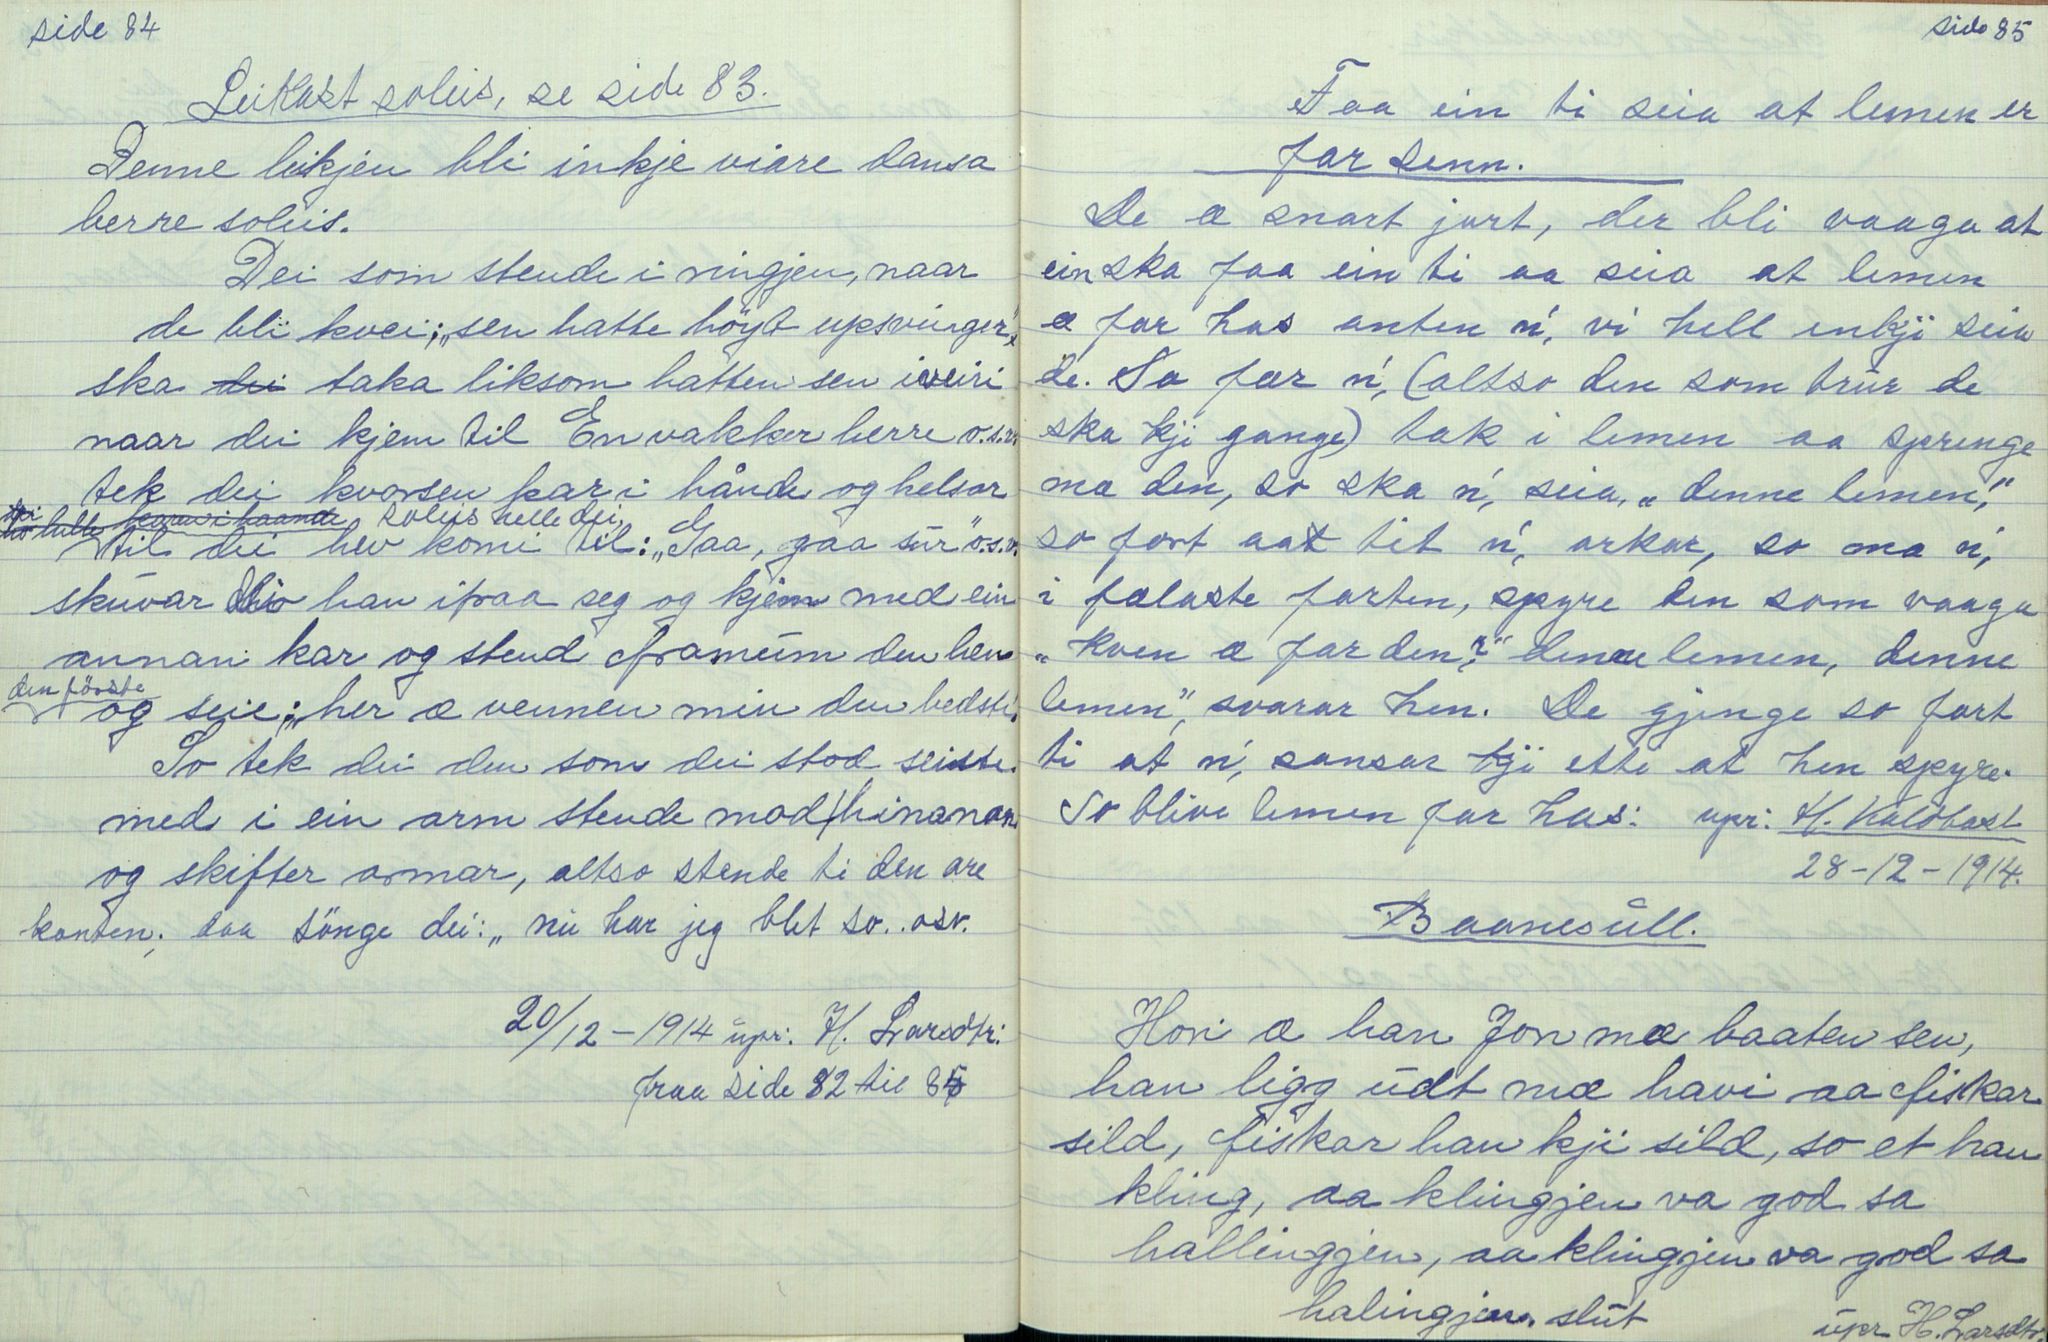 side 84
Leikast soleis, se side 83.
Denne leikjen bli inkje viare dansa
berre soleis.
Dei som stende i ringjen, naar
de bli kvei; „sen hatte höyt upsvinger"
ska dei taka liksom hatten sen iveiri
naar dei kjem til En vakker herre o.s.v.
tek dei kvorsen kar i hånde og helsar
karen i haande soleis helle dei,
til dei hev komi til: „Gaa, gaa sur ö.s.v.
skuvar han ifraa seg og kjem med ein
annan kar og stend framum den
den förste
og seie; „her æ vennen min den bedste".
So tek dei den som dei stod seiste.
med i ein arm stende mod hinanan
og skifter armar, altso stende ti den are
kanten; daa sönge dei: „nu har jeg blet so.. osv.
20/12 – 1914 upr: H. Larsdtr:
fraa side 82 til 85
side 85
Faa ein ti seia at lemen er
far senn.
De æ snart jort, der bli vaaga at
ein ska faa ein ti aa seia at lemen
æ far has anten n', vi hell inkji seia
de. So fær n', (altso den som trur de
ska kji gange) tak i lemen aa springe
mæ den, so ska n', seia, „denne lemen,"
so fort aat tit n', orkar, so ma n',
i fælaste farten, spyre den som vaaga
„kven æ far den?" denne lemen, denne
lemen", svarar hen. De gjenge so fort
ti at n', sansar kji ette at hen spyre.
So blive lemen far has: upr: H. Kaldbast
28–12–1914.
Baanesull.
Hori æ han Jon mæ baaten sen,
han ligg udt mæ havi aa fiskar
sild, fiskar han kji sild, so et han
kling, aa klingjen va god sa
hallingjen, aa klingjen va god sa
halingjen. slut
upr H. Larsdtr: